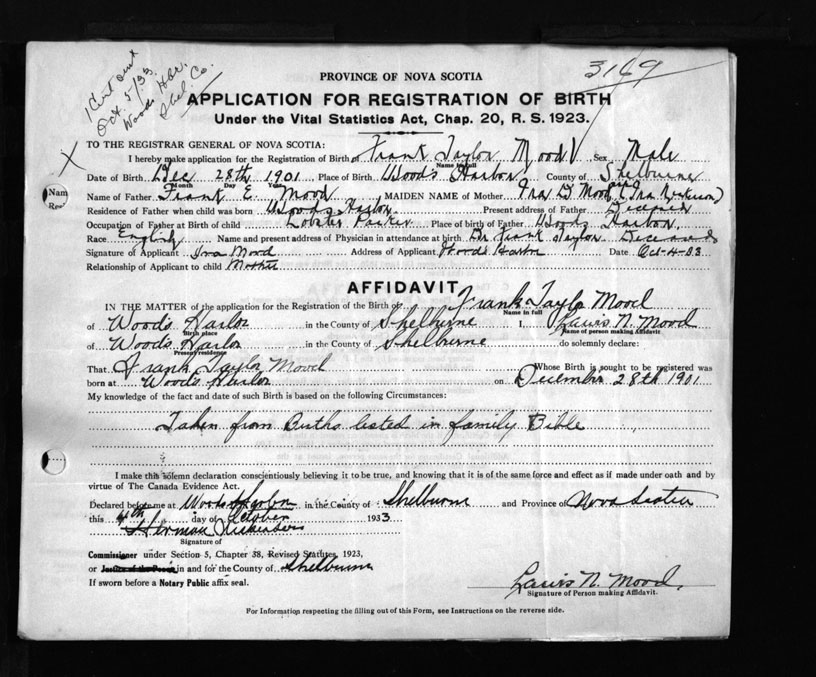 1 Cert out
Oct. 5/33
Woods Hbr.
Shel. Co.
3169
PROVINCE OF NOVA SCOTIA
APPLICATION FOR REGISTRATION OF BIRTH
Under the Vital Statistics Act, Chap. 20, R. S. 1923.
X
TO THE REGISTRAR GENERAL OF NOVA SCOTIA:
I hereby make application for the Registration of Birth of Frank Taylor Mood Sex Male
Name in full
Date of Birth Dec 28th 1901 Place of Birth Woods Harbor County of Shelburne
Month Day Year
Name of Father Frank E. Mood MAIDEN NAME of Mother Ira D Mood (Ira Nickerson)
Residence of Father when child was born Woods Harbor Present address of Father Deceased
Occupation of Father at Birth of child Lobster Packer Place of birth of Father Woods Harbor
Race English Name and present address of Physician in attendance at birth Dr Frank Taylor Deceased
Signature of Applicant Ira Mood Address of Applicant Woods Harbor Date Oct-4-33
Relationship of Applicant to child Mother
Nam
Re
AFFIDAVIT
IN THE MATTER of the application for the Registration of the Birth of Frank Taylor Mood
Name in full
of Woods Harbor in the County of Shelburne I, Lewis N. Mood
Birth place Name of person making Affidavit
of Woods Harbor in the County of Shelburne do solemnly declare:
Present residence
That Frank Taylor Mood Whose Birth is sought to be registered was
born at Woods Harbor on December 28th 1901
My knowledge of the fact and date of such Birth is based on the following Circumstances:
Taken from Births listed in family Bible
I make this solemn declaration conscientiously believing it to be true, and knowing that it is of the same force and effect as if made under oath and by
virtue of The Canada Evidence Act.
Declared before me at Woods Harbor in the County of Shelburne and Province of Nova Scotia
this 4th day of October 1933
Herman Nickerson
Signature of
Commissioner under Section 5, Chapter 38, Revised Statutes, 1923,
or Justice of the Peace in and for the County of Shelburne
If sworn before a Notary Public affix seal.
Lewis N. Mood.
Signature of Person making Affidavit.
For Information respecting the filling out of this Form, see Instructions on the reverse side.